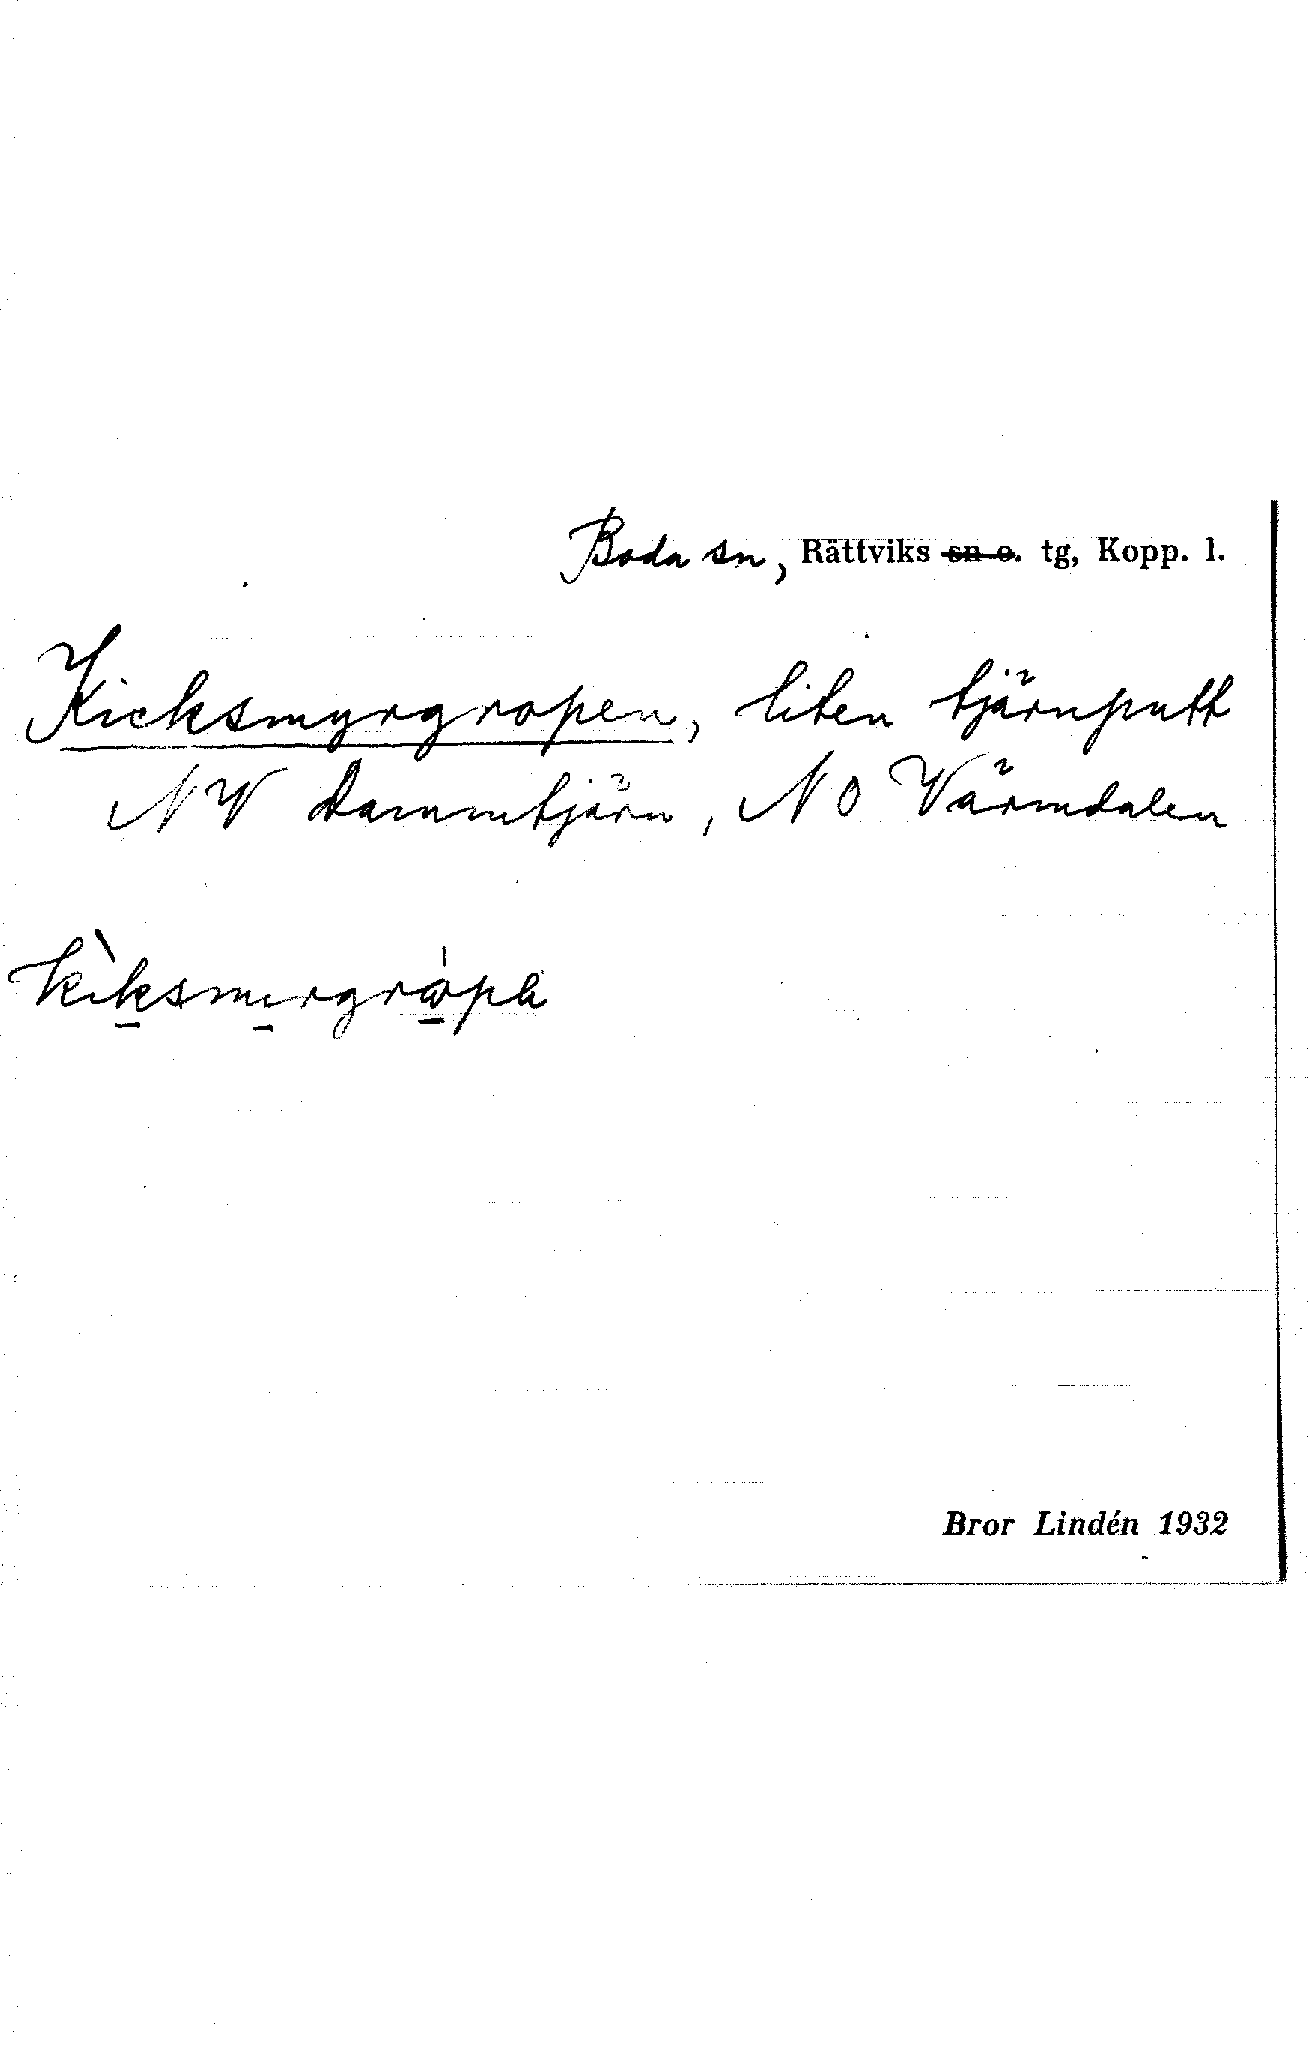 Boda sn, Rättviks sn o. tg, Kopp. l.
Kicksmyrgropen, liten tjärnputt
NV Dammtjärn, NO Värmdalen
Bror Lindén 1932